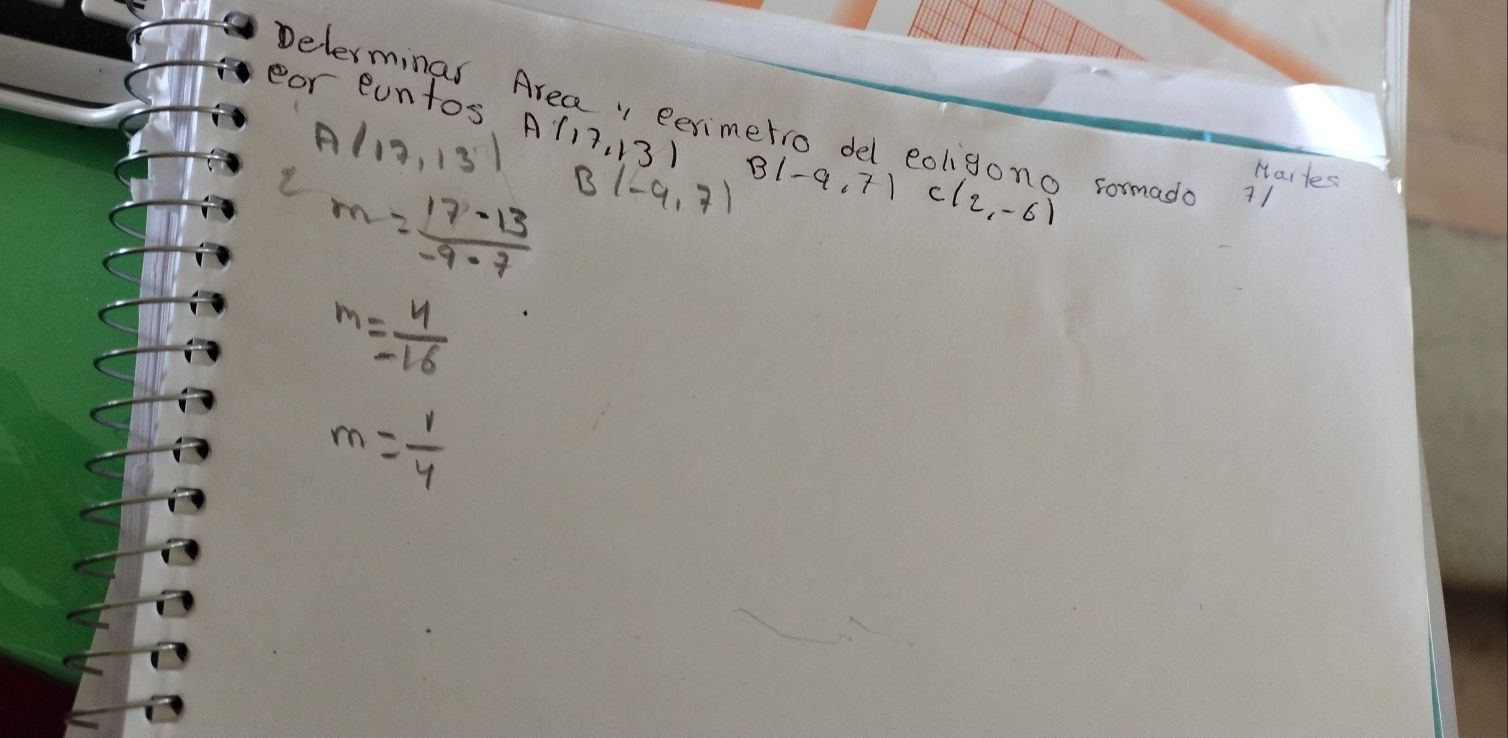 Determinar Area y perimetro del poligono formado
por puntos A(17,13) B(-9,7) C(2,-6)
Martes
7/
A(17,13) B(-9,7)
m = 17-13
-9-7
m = 4
-16
m = 1
4